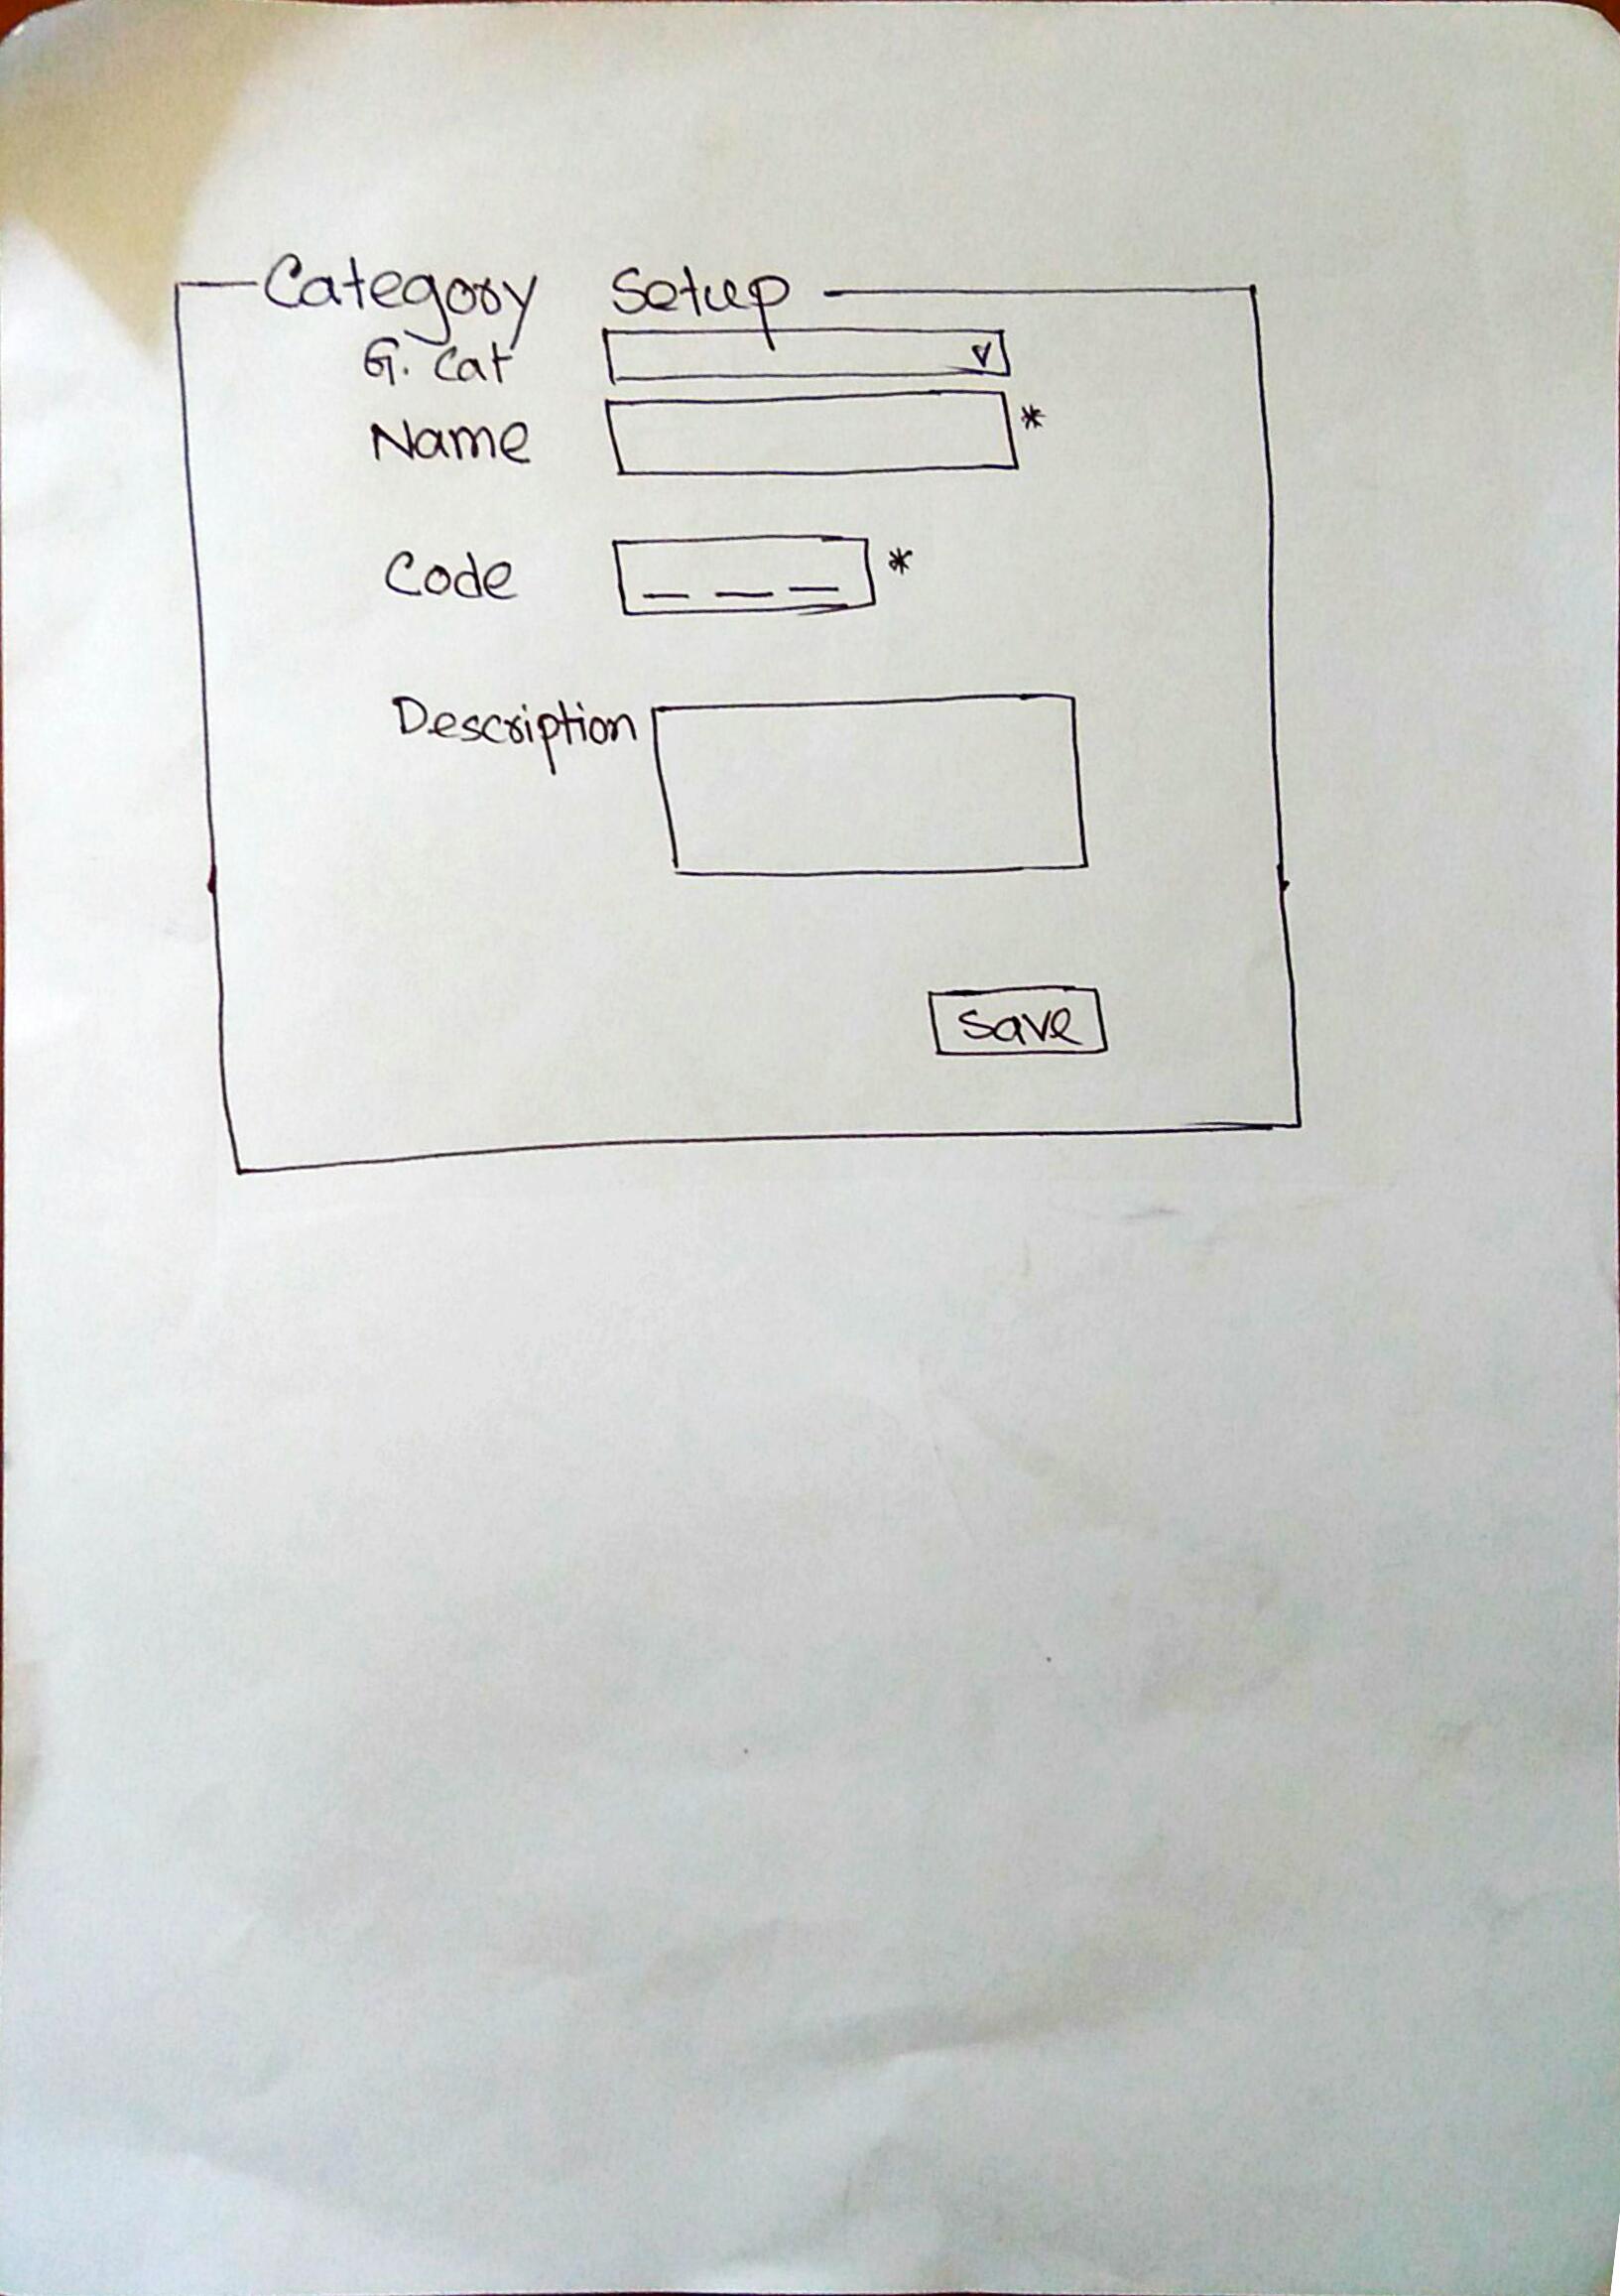 Category Setup
G. Cat
Name *
Code _ _ _ *
Description
Save